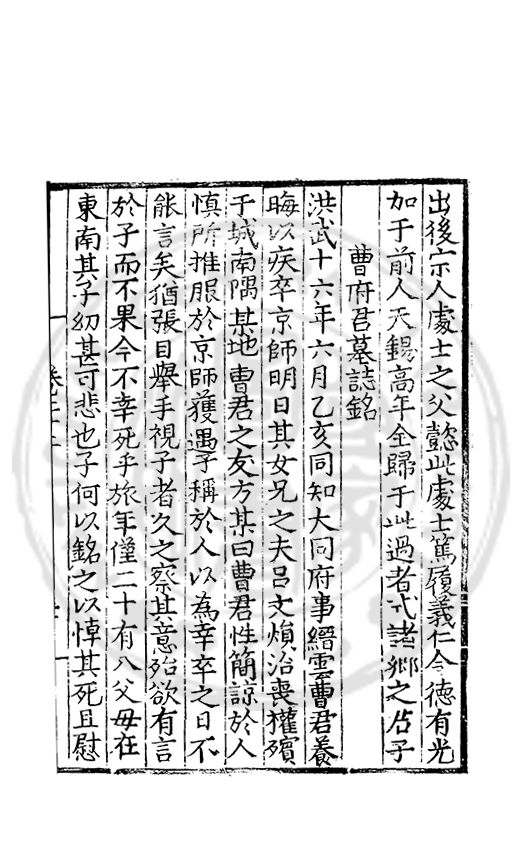 出後宗人處士之父懿此處士篤履義仁令德有光
加于前人天錫高年全歸于此過者式諸鄉之君子
曹府君墓誌銘
洪武十六年六月乙亥同知大同府事縉雲曹君養
晦以疾卒京師明日其女兄之夫呂文熉治喪權殯
于城南隅某地曹君之友方某曰曹君性簡諒於人
慎所推服於京師獲遇予稱於人以為幸卒之日不
能言矣猶張目舉手視予者久之察其意殆欲有言
於予而不果今不幸死乎旅年僅二十有八父母在
東南其子幼甚可悲也予何以銘之以悼其死且慰